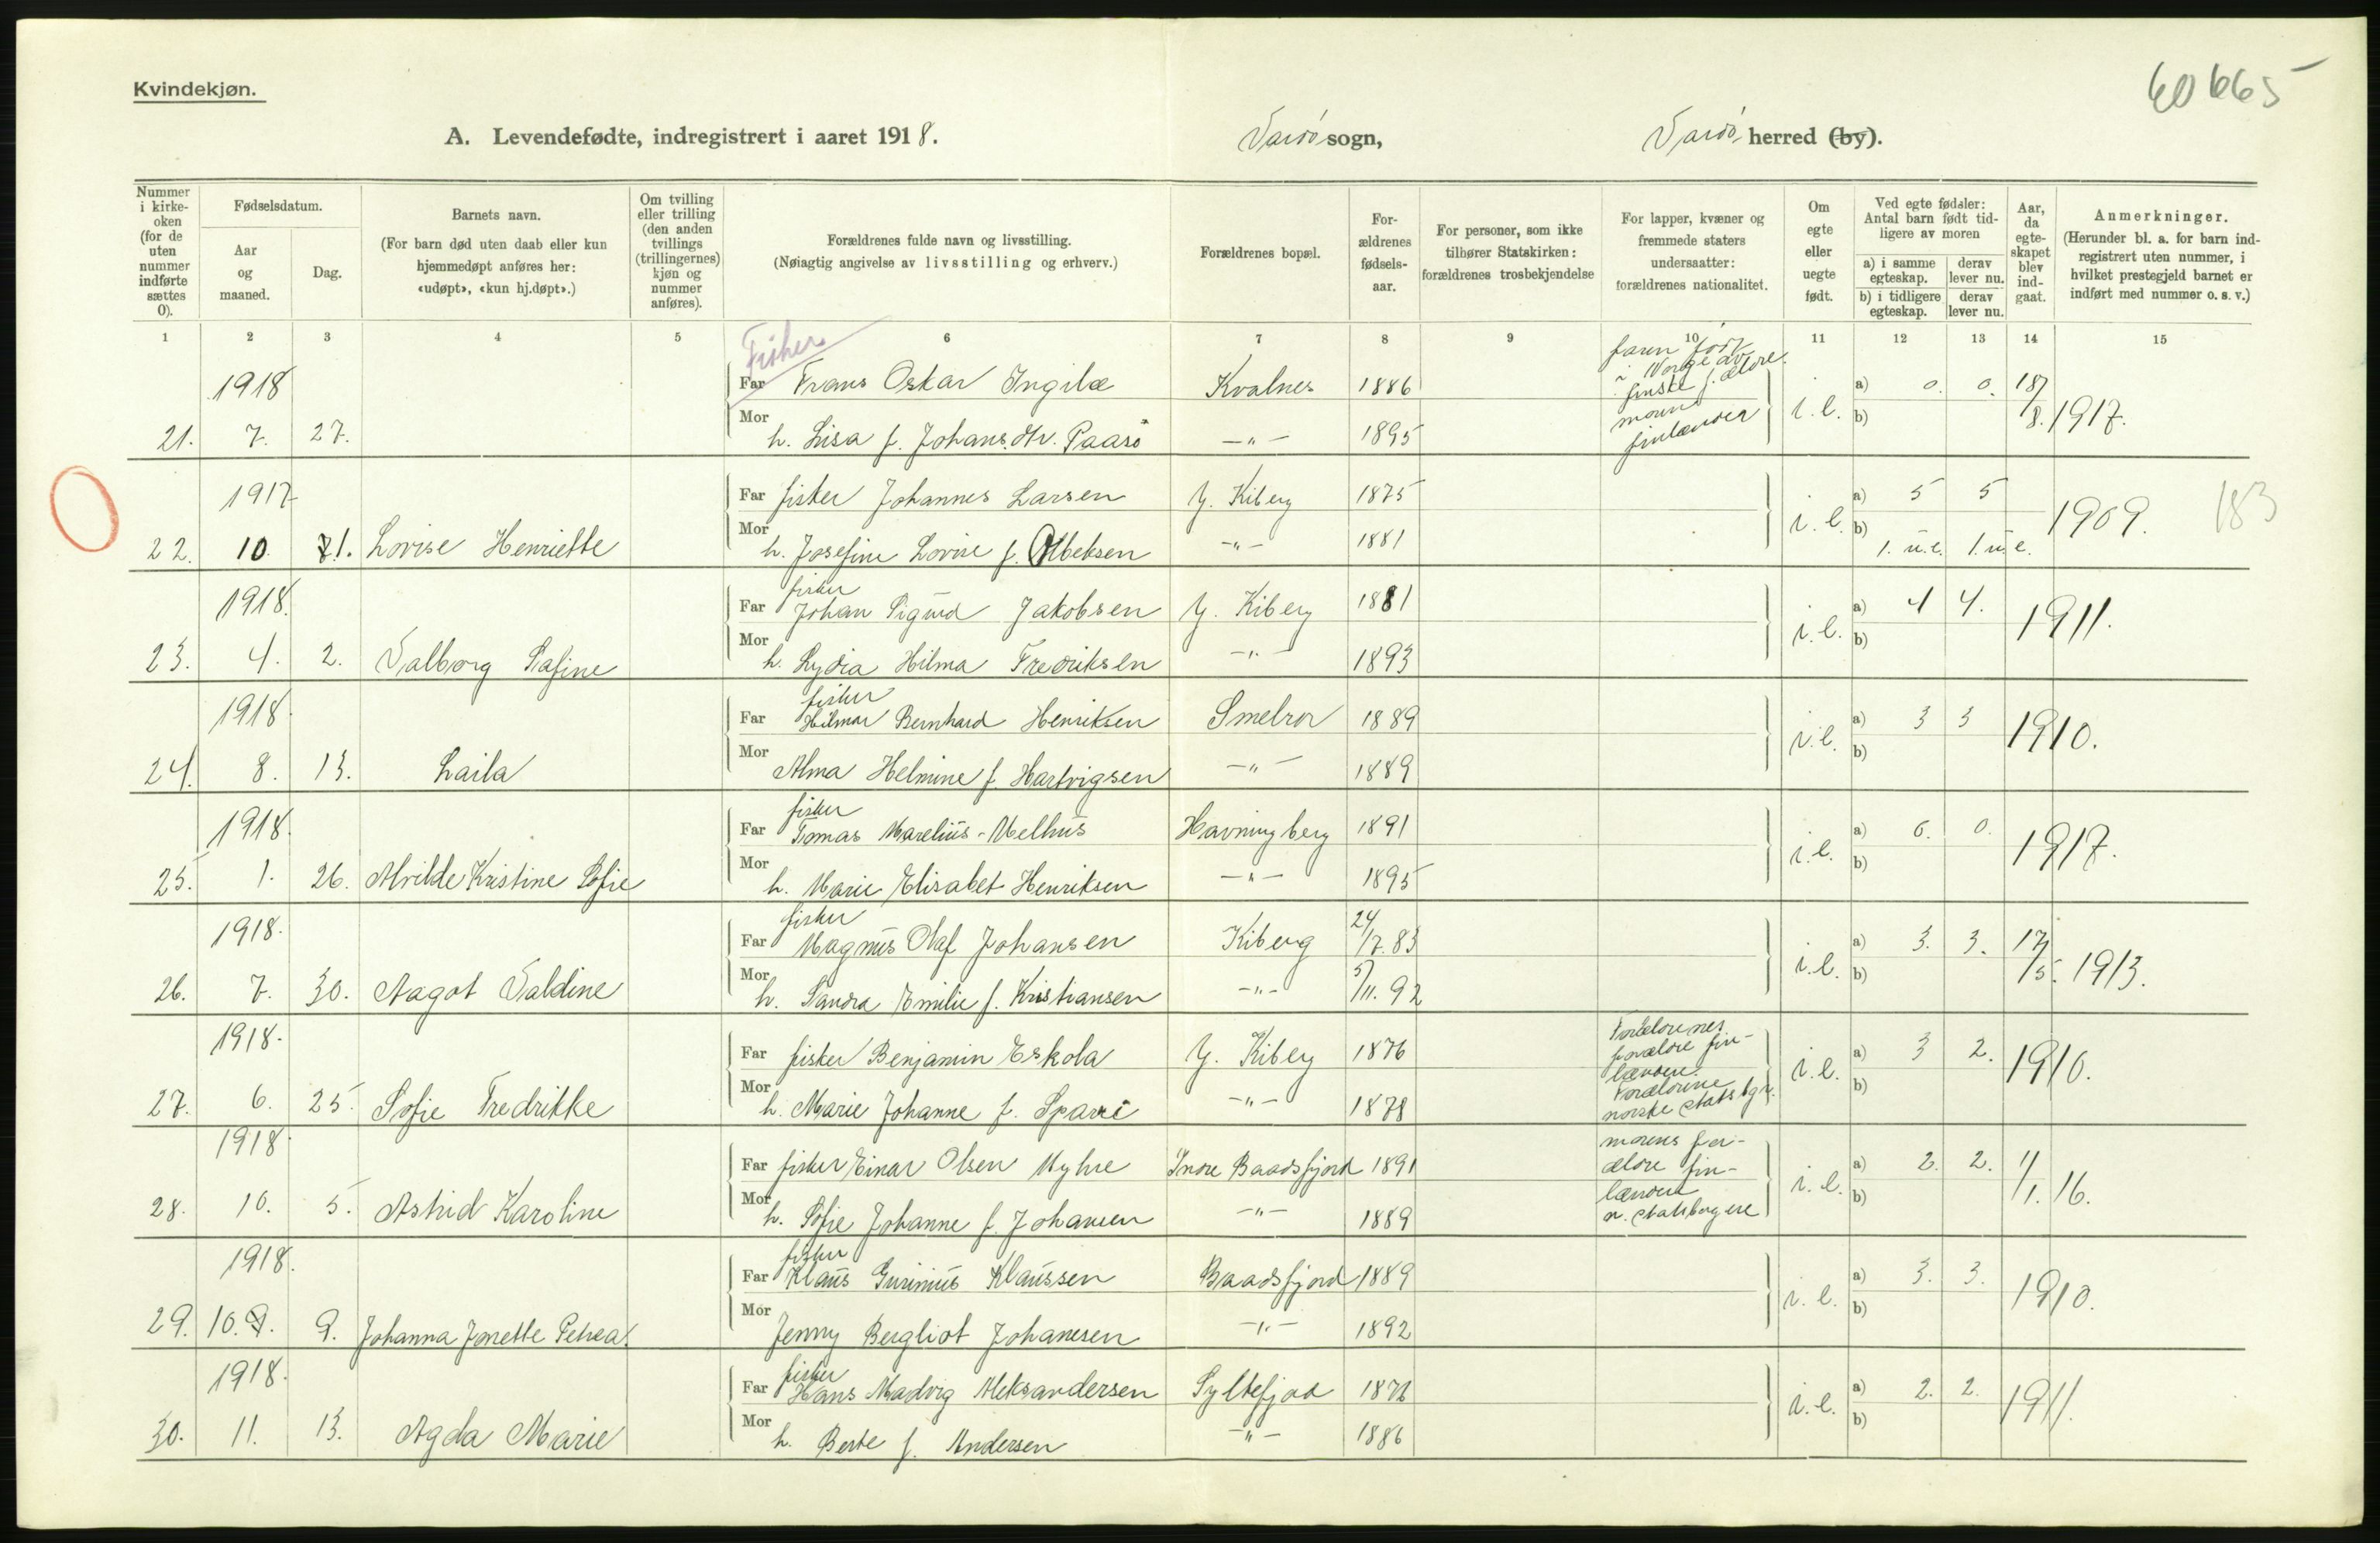 Kvindekjøn.
60 665
A. Levendefødte, indregistrert i aaret 1918. Vardø sogn, Vardø herred (by).
Nummer i kirke- oken (for de uten nummer indførte sættes 0).
Fødselsdatum.
Aar og maaned.
Dag.
Barnets navn.
(For barn død uten daab eller kun hjemmedøpt anføres her: «udøpt», «kun hj.døpt».)
Om tvilling eller trilling (den anden tvillings (trillingernes) kjøn og nummer anføres).
Forældrenes fulde navn og livsstilling.
(Nøiagtig angivelse av livsstilling og erhverv.)
Forældrenes bopæl.
For- ældrenes fødsels- aar.
For personer, som ikke tilhører Statskirken: forældrenes trosbekjendelse
For lapper, kvæner og fremmede staters undersaatter: forældrenes nationalitet.
Om egte eller uegte født.
Ved egte fødsler: Antal barn født tid- ligere av moren
a) i samme egteskap. derav lever nu.
b) i tidligere egteskap. derav lever nu.
Aar, da egte- skapet blev ind- gaat.
Anmerkninger.
(Herunder bl. a. for barn ind- registrert uten nummer, i hvilket prestegjeld barnet er indført med nummer o. s. v.)
1 2 3 4 5 6 7 8 9 10 11 12 13 14 15
Fisker
1918 Far Frans Oskar Ingilæ Kvalnes 1886 faren født i Norge av finske f.ældre. a) 0. 0. 18/8. 1917.
21. 7. 27. Mor h. Lisa f. Johans.dtr. Paasö -"- 1895 moren finlænder i. e. b)
1917 Far fisker Johannes Larsen Y. Kiberg 1875 a) 5 5 1909. 183
22. 10. 21. Lovise Henriette Mor h. Josefine Lovise f. Olbeksen -"- 1881 i. e. b) 1. u.e. 1. u.e.
1918. Far fisker Johan Sigurd Jakobsen Y. Kiberg 1881 a) 4 4. 1911.
23. 4. 2. Valborg Safine Mor h. Lydia Hilma Fredriksen -"- 1893 i. e. b)
1918. Far fisker Hilmar Bernhard Henriksen Smelror 1889 a) 3 3 1910.
24. 8. 13. Laila Mor Alma Helmine f. Hartvigsen -"- 1889 i. e. b)
1918. Far fisker Tomas Marelius Melhus Havningberg 1891 a) 0. 0. 1917.
25. 1. 26. Alvilde Kristine Sofie Mor h. Marie Elisabet Henriksen -"- 1895 i. e. b)
1918. Far fisker Magnus Olaf Johansen Kiberg 24/7. 83 a) 3. 3. 17/5. 1913.
26. 7. 30. Aagot Valdine Mor h. Sandra Emilie f. Kristiansen -"- 5/11. 92 i. e. b)
1918. Far fisker Benjamin Eskola Y. Kiberg 1876 Forældrenes forældre fin- lændere. a) 3 2. 1910.
27. 6. 25. Sofie Fredrikke Mor h. Marie Johanne f. Sparri -"- 1878 Forældrene norske statsbgr. i. e. b)
1918. Far fisker Einar Olsen Myhre Indre Baadsfjord 1891 morens for- ældre fin- a) 2. 2. 1/1. 16.
28. 10. 5. Astrid Karoline Mor h. Sofie Johanne f. Johansen -"- 1889 lændere n. statsborgere i. e. b)
1918. Far fisker Klaus Gurinius Klaussen Baadsfjord 1889 a) 3. 3. 1910.
29. 10. 9. 9. Johanna Jonette Petrea. Mor Jenny Bergliot Johanesen -"- 1892 i. e. b)
1918. Far fisker Hans Madvig Aleksandersen Syltefjod 1876 a) 2. 2. 1911.
30. 11. 13. Agda Marie Mor h. Berte f. Andersen -"- 1886 i. e. b)